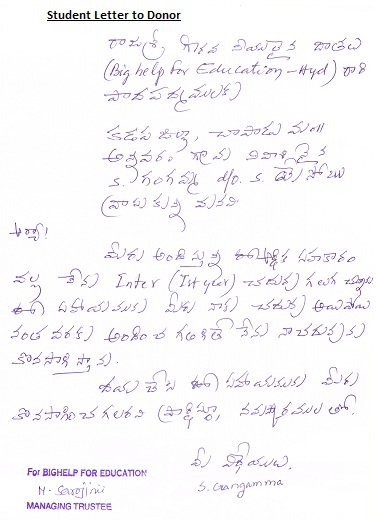 Student Letter to Donor
రాజశ్రీ గౌరవ నీయులైన దాతలు
(Big help for Education - Hyd) గారి
పాదపద్మములకు
కడప జిల్లా, చాపాడు మం॥
అన్నవరం గ్రామ నివాసి నైన
S. గంగమ్మ d/o. S.
వ్రాసుకున్న మనవి
ఆర్యా!
మీరు అందిస్తున్న ఆర్థిక సహకారం
వల్ల నేను Inter (Ist year) చదువు గలుగ చున్నాను
ఈ సహాయమును మీరు నాకు చదువు అయిపోయే
నంత వరకు అందించ గలిగితే నేను నా చదువును
కొనసాగిస్తాను.
దయచేసి ఈ సహాయమును మీరు
కొనసాగించ గలరని ప్రార్థిస్తూ, నమస్కారముల తో.
మీ విధేయులు.
S. Gangamma
For BIGHELP FOR EDUCATION
N. Sarojini
MANAGING TRUSTEE